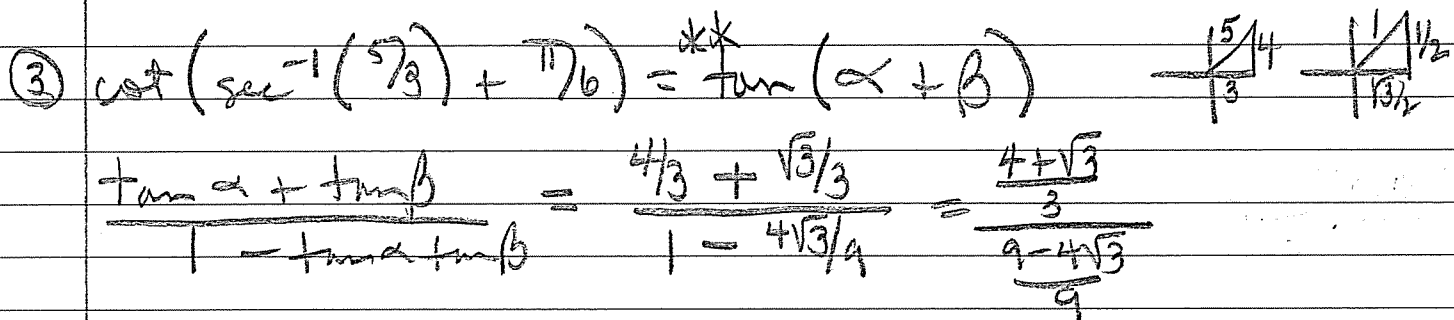 ③ cot(sec⁻¹(5/3) + π/6) = ** tan(α + β) 5 4 3 1 1/2 √3/2
(tan α + tan β)/(1 - tan α tan β) = (4/3 + √3/3)/(1 - 4√3/9) = ((4+√3)/3)/((9-4√3)/9)